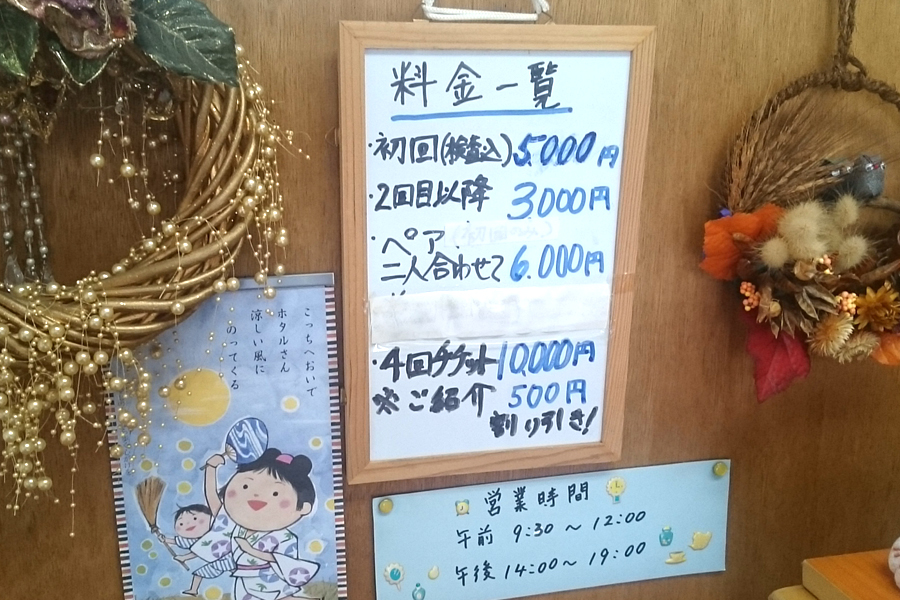 料金一覧
・初回(検査込) 5.000円
・2回目以降 3.000円
・ペア (初回のみ)
二人合わせて 6.000円
・4回チケット 10,000円
※ご紹介 500円
割り引き!
こっちへおいで
ホタルさん
涼しい風に
のってくる
営業時間
午前 9:30 ～ 12:00
午後 14:00 ～ 19:00